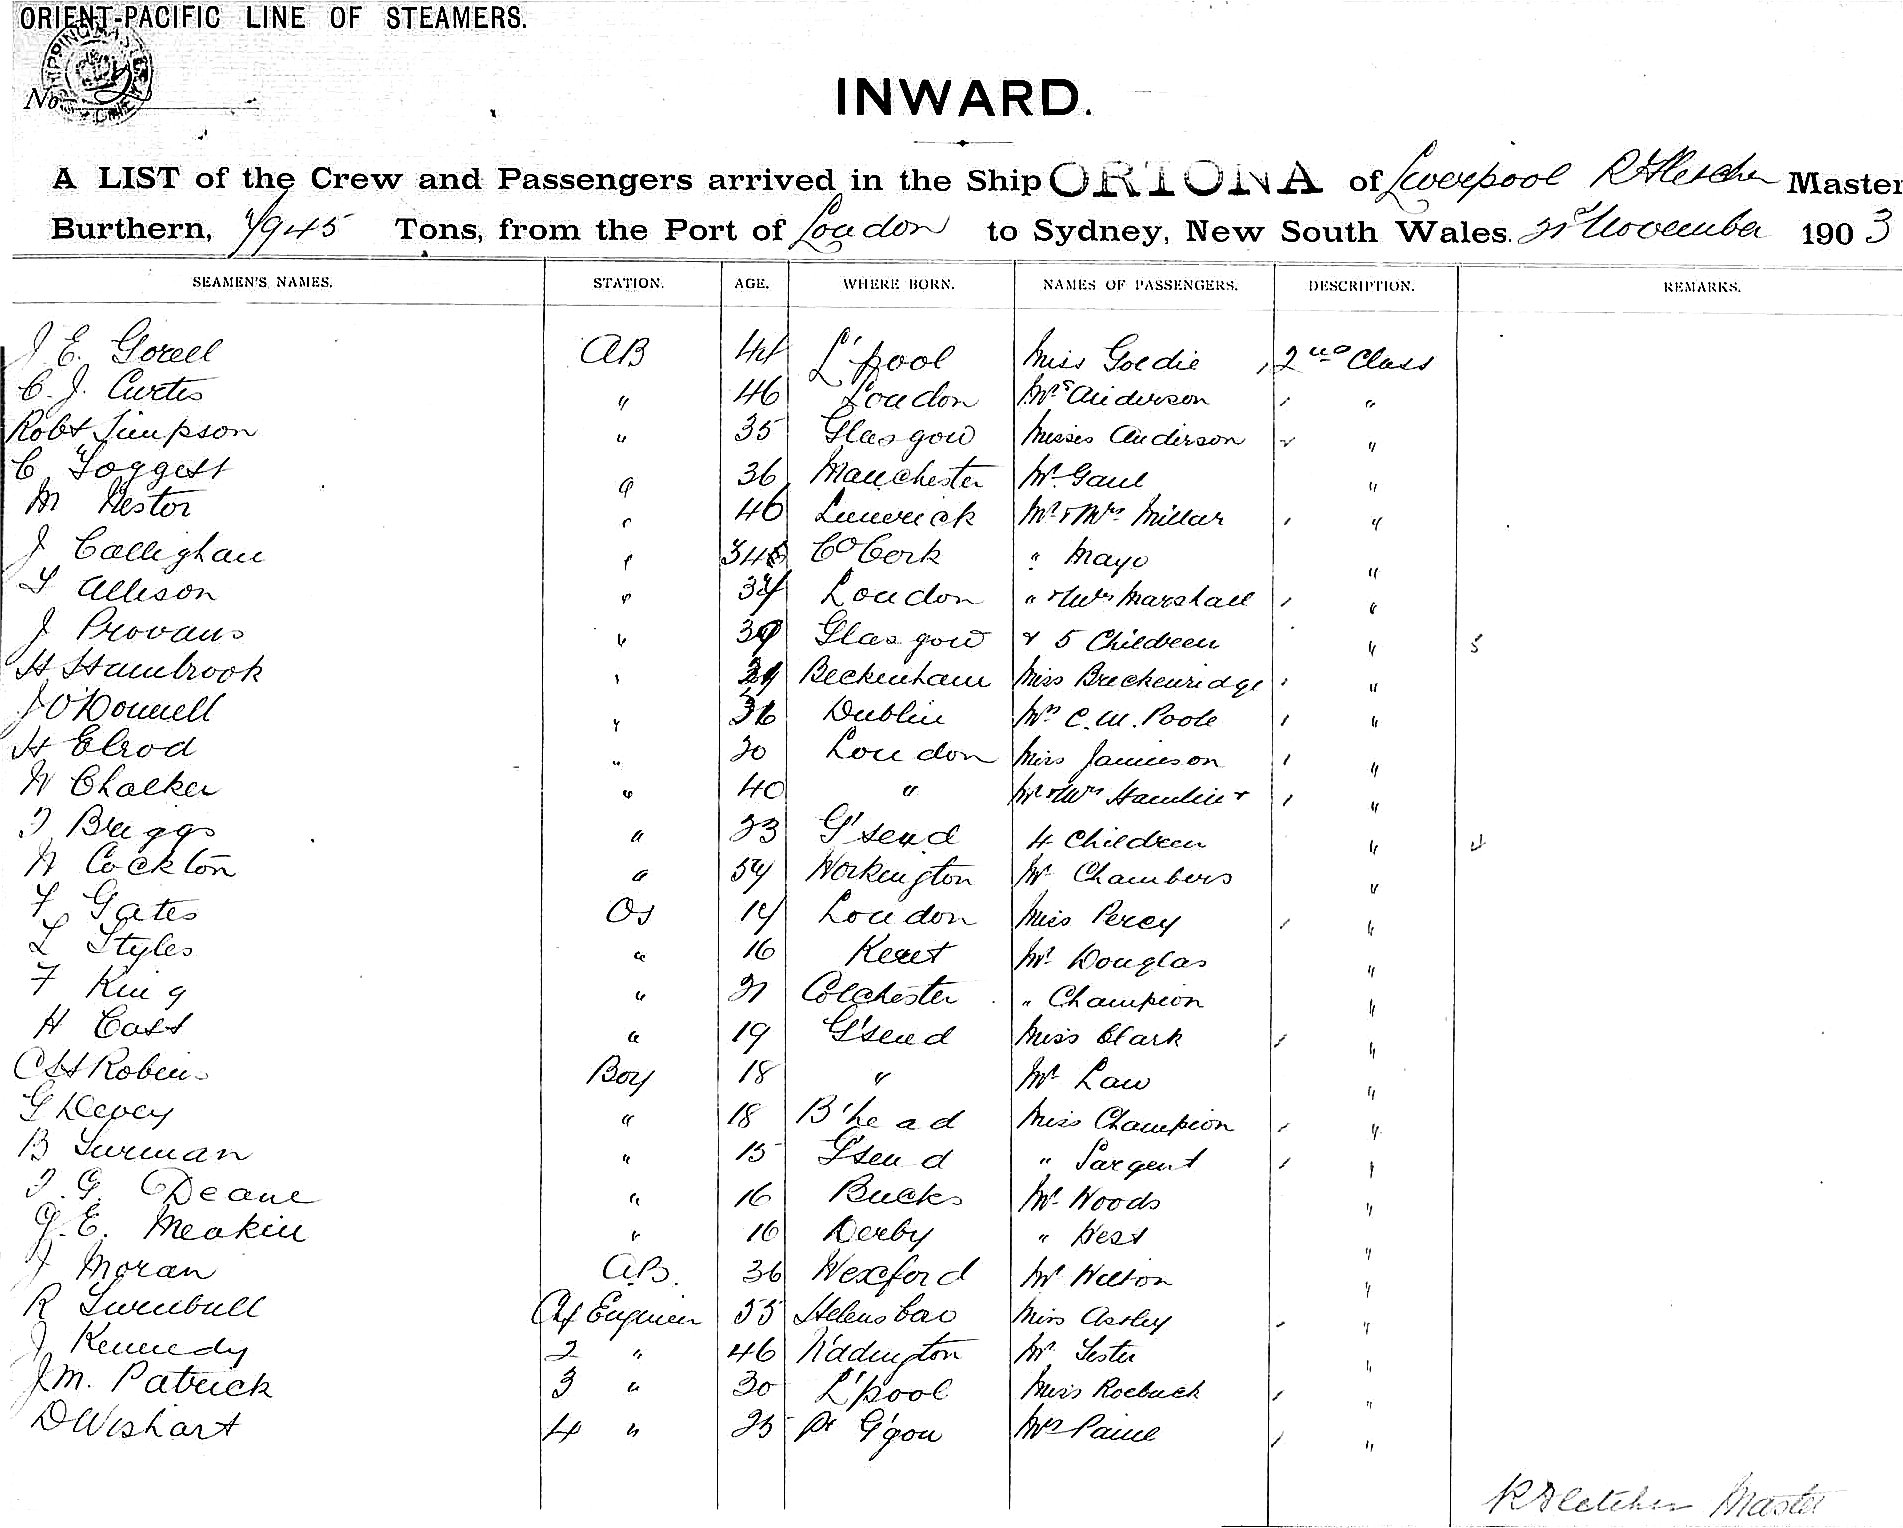 ORIENT-PACIFIC LINE OF STEAMERS.
No
INWARD.
A LIST of the Crew and Passengers arrived in the Ship ORTONA of Liverpool R Fletcher Master
Burthern, 7945 Tons, from the Port of London to Sydney, New South Wales. 21st November 1903
SEAMEN'S NAMES. STATION. AGE. WHERE BORN. NAMES OF PASSENGERS. DESCRIPTION. REMARKS.
J E. Gorell AB 44 L'pool Miss Goldie 2nd Class
C. J. Curtis " 46 London Mrs Anderson "
Robt Simpson " 35 Glasgow Misses Anderson "
C Foggett " 36 Manchester Mr Gaul "
M Nestor " 46 Limerick Mr & Mrs Millar "
J Callighan " Co Cork " Mayo "
T Allison " 34 London " & Mrs Marshall "
J Provans " 39 Glasgow & 5 Children " 5
H Hambrook " Beckenham Miss Breckenridge "
J O'Donnell " 36 Dublin Mrs C. M. Poole "
H Elrod " 30 London Miss Jamieson "
W Chalker " 40 " Mr & Mrs Hamlin & "
T Briggs " 23 G'send 4 Children " 4
W Cockton " 54 Workington Mr Chambers "
F Gates OS 17 London Miss Percy "
L Styles " 16 Kent Mr Douglas "
F King " 21 Colchester " Champion "
H Cast " 19 G'send Miss Clark "
C H Robins Boy 18 " Mr Law "
G Devey " 18 B'head Miss Champion "
B Surman " 15 G'send " Sargent "
T. G. Deane " 16 Bucks Mr Woods "
G. E. Meakin " 16 Derby " West "
J Moran A.B. 36 Wexford Mr Wilton "
R Turnbull Chf Engineer 55 Helensbro Miss Astley "
J Kennedy 2 " 46 W'dington Mr Lester "
J. M. Patrick 3 " 30 L'pool Miss Roebuck "
D Wishart 4 " 25 Pt G'gow Mrs Paine "
R Fletcher Master